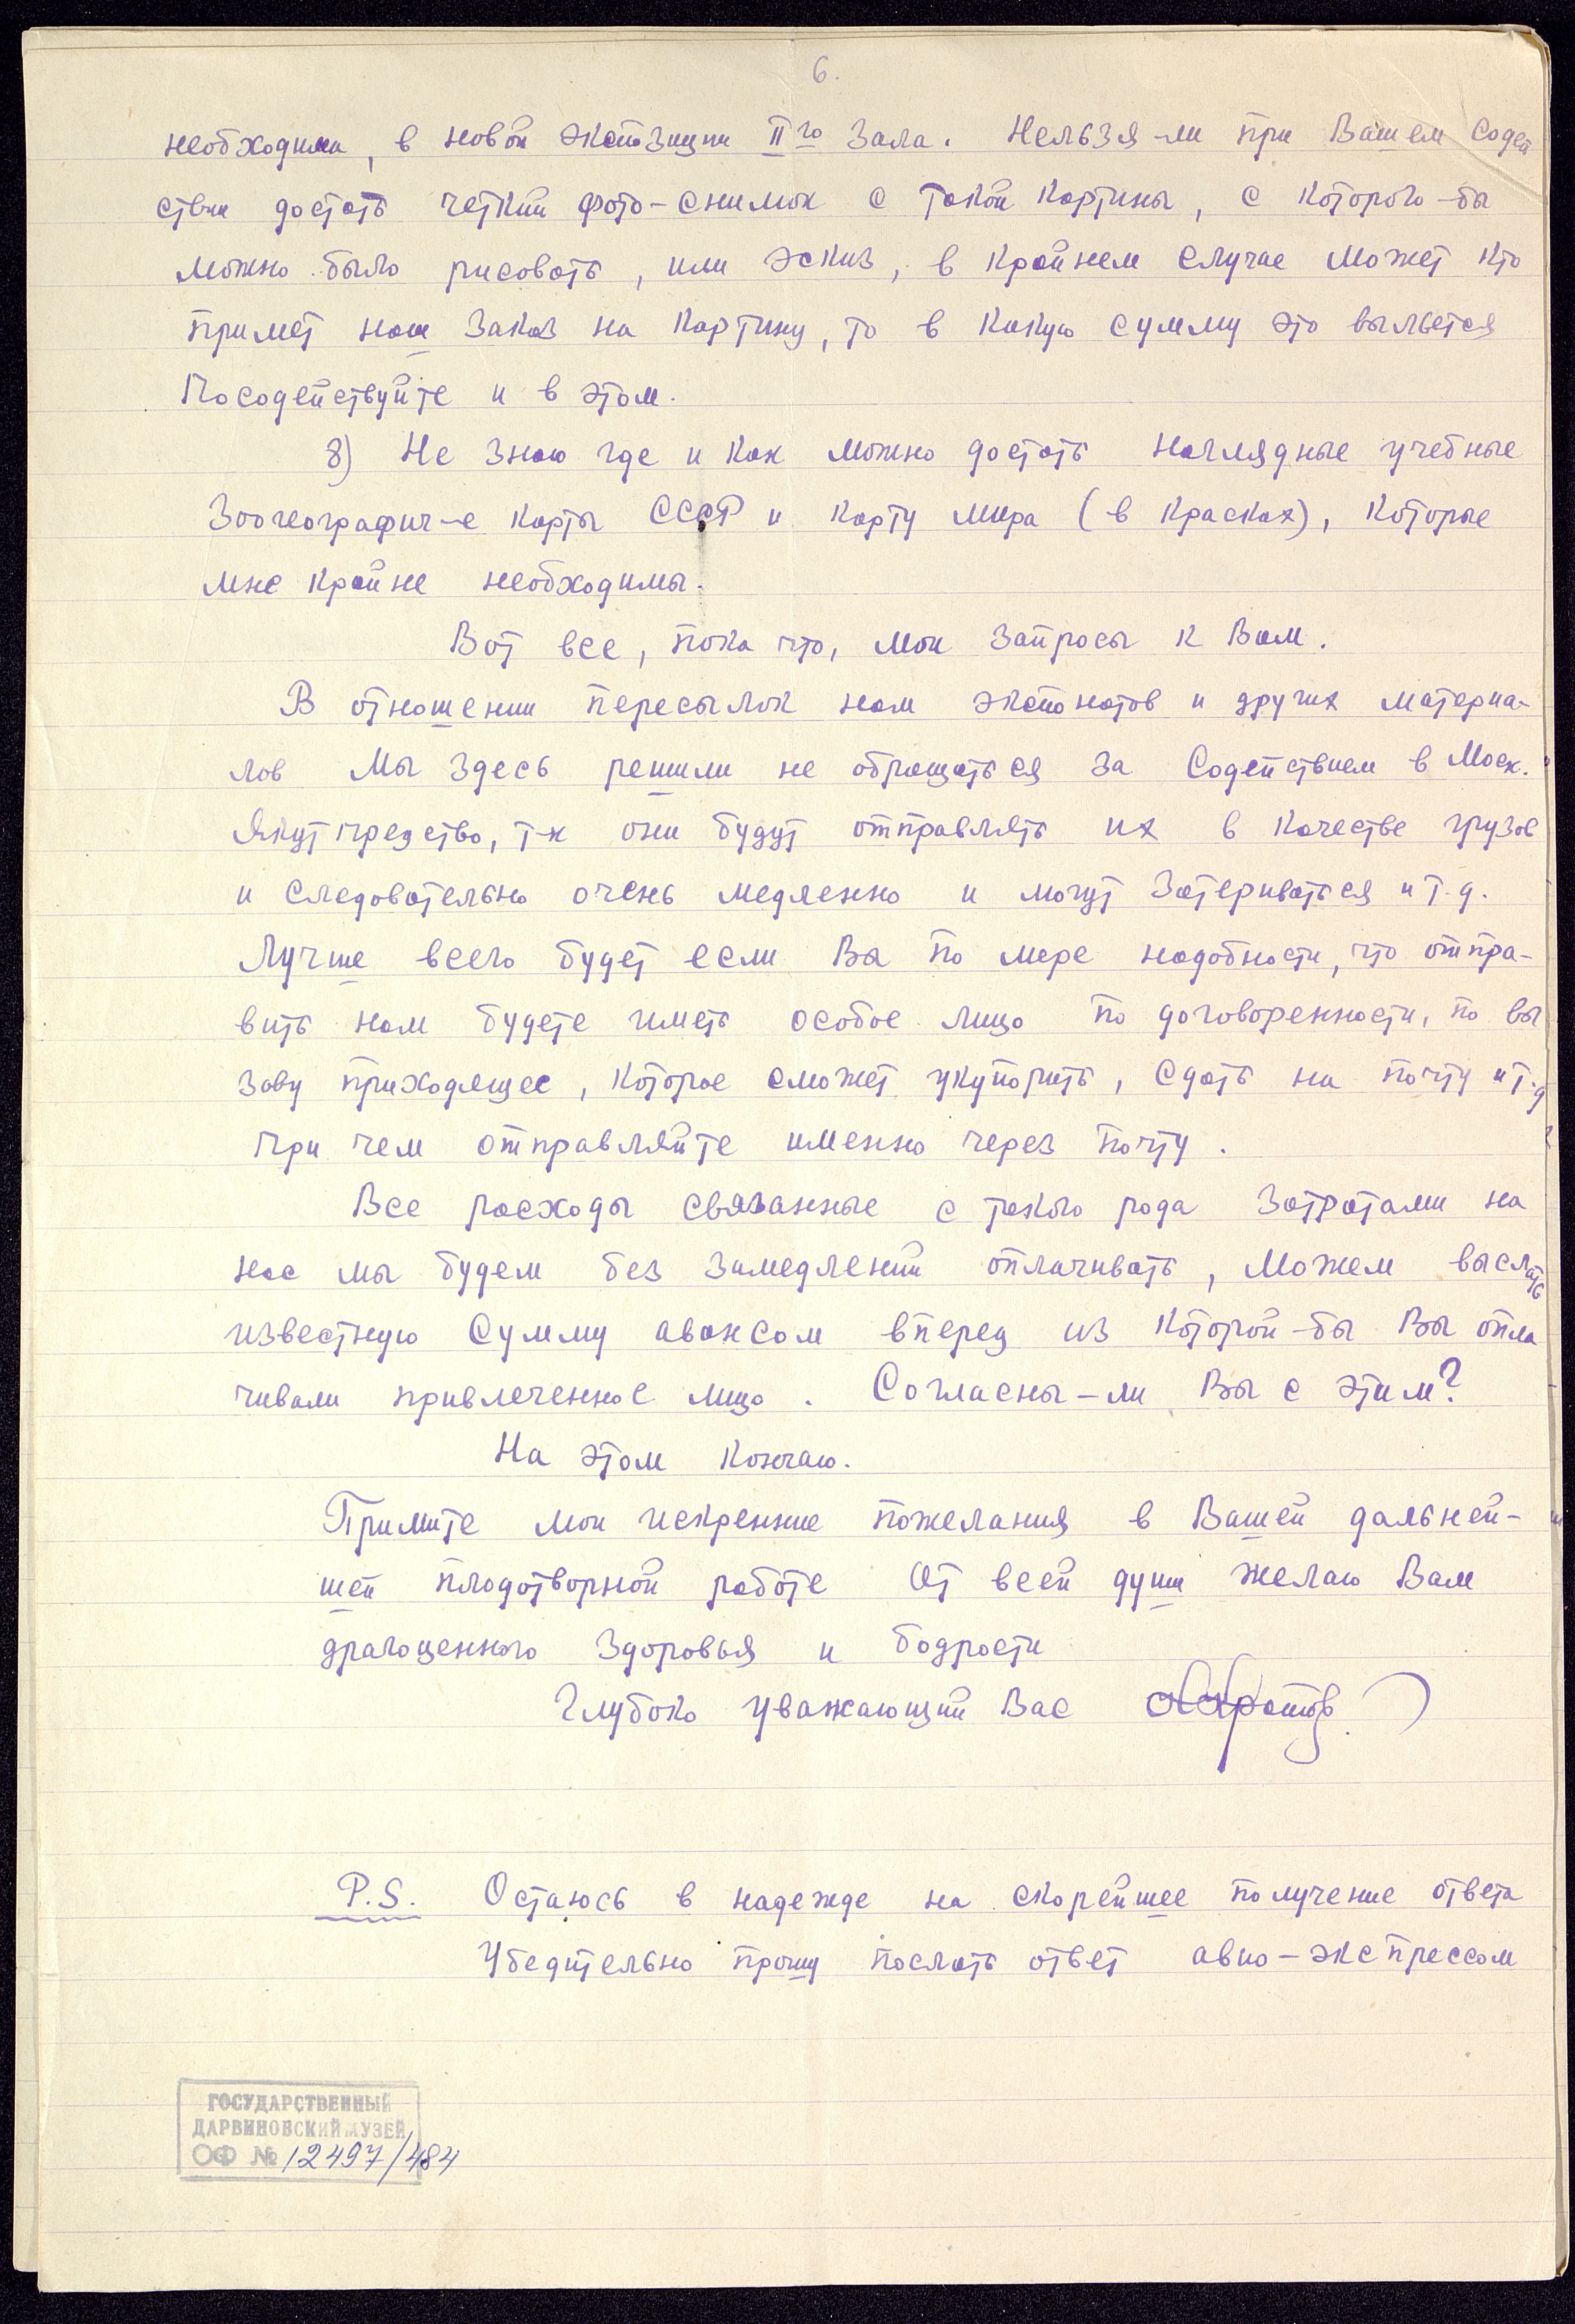 6.
необходима, в новой экспозиции IIго зала. Нельзя-ли при Вашем содей
ствии достать четкий фото-снимок с такой картины, с которого-бы
можно было рисовать, или эскиз, в крайнем случае может кто
примет наш заказ на картину, то в какую сумму это выльется
Посодействуйте и в этом.
8) Не знаю где и как можно достать наглядные учебные
Зоогеографич-е карты СССР и карту мира (в красках), которые
мне крайне необходимы.
Вот все, пока что, мои запросы к Вам.
В отношении пересылок нам экспонатов и других материа-
лов мы здесь решили не обращаться за содействием в Моск.
Якутпредство, т-к они будут отправлять их в качестве грузов
и следовательно очень медленно и могут затериваться и т.д.
Лучше всего будет если Вы по мере надобности, что отпра-
вить нам будете иметь особое лицо по договоренности, по вы
зову приходящее, которое сможет укупорить, сдать на почту и т.д
При чем отправляйте именно через почту.
Все расходы связанные с такого рода затратами на
нас мы будем без замедлений оплачивать, можем выслать
известную сумму авансом вперед из которой-бы Вы опла
чивали привлеченное лицо. Согласны-ли Вы с этим?
На этом кончаю.
Примите мои искренние пожелания в Вашей дальней-
шей плодотворной работе От всей души желаю Вам
драгоценного здоровья и бодрости
Глубоко уважающий Вас
P.S. Остаюсь в надежде на скорейшее получение ответа
Убедительно прошу послать ответ авио-экспрессом
ГОСУДАРСТВЕННЫЙ
ДАРВИНОВСКИЙ МУЗЕЙ
ОФ № 12497/484